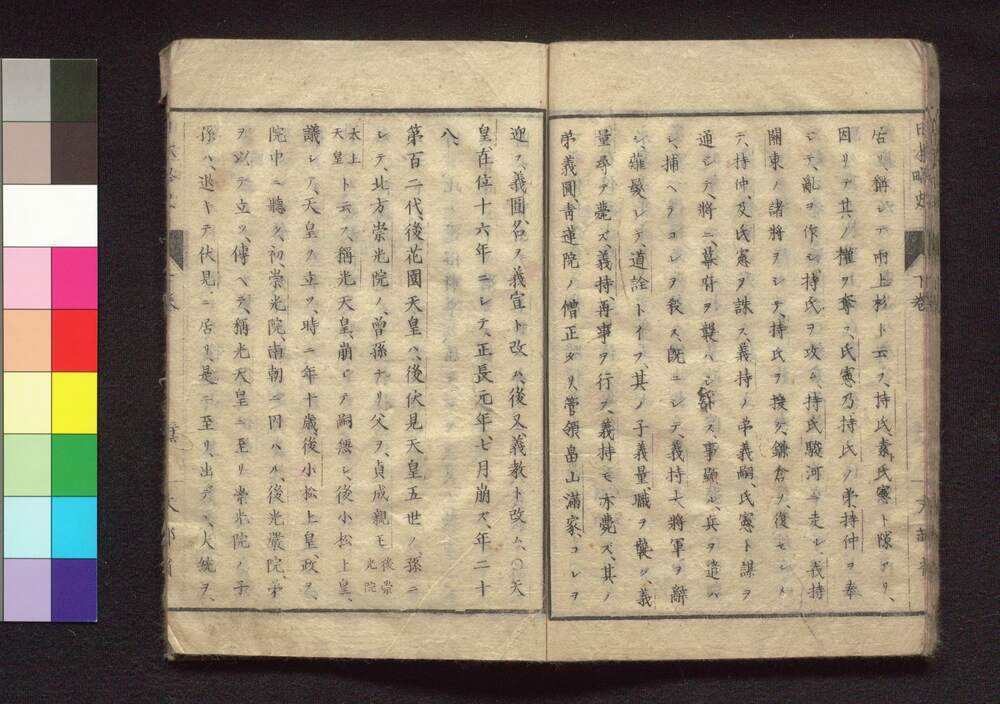 右ヲ、稱シテ両上杉ト云フ、持氏素氏憲ト隙アリ、
因リテ其ノ權ヲ奪フ、氏憲乃持氏ノ弟持仲ヲ奉
シテ、亂ヲ作シ、持氏ヲ攻ム、持氏駿河ニ走ル、義持
關東ノ諸將ヲシテ、持氏ヲ援ケ、鎌倉ヲ復セシ
ム、持仲、及氏憲ヲ誅ス、義持ノ弟義嗣、氏憲ト謀ヲ
通シテ、將ニ、幕府ヲ襲ハントス、事顯ル、兵ヲ遣ハ
シ、捕ヘテコレヲ殺ス、既ニシテ、義持大將軍ヲ辭
シ、薙髮シテ、道詮トイフ、其ノ子義量、職ヲ襲グ、義
量尋テ薨ズ、義持、再事ヲ行フ、義持モ亦薨ス、其ノ
弟義圓、青蓮院ノ僧正タリ、管領畠山滿家、コレヲ
迎フ、義圓、名ヲ義宣ト改ム、後又義教ト改ム、〇天
皇、在位十六年ニシテ、正長元年七月崩ズ、年二十
八、
第百二代、後花園天皇ハ、後伏見天皇五世ノ孫ニ
シテ、北方崇光院ノ、曾孫ナリ、父ヲ、貞成親王 後崇光院
太上天皇 ト云フ、稱光天皇、崩シテ嗣無シ、後小松上皇、
議シテ、天皇ヲ立ツ、時ニ年十歳、後小松上皇、政ヲ、
院中ニ聽ク、初崇光院、南朝ニ囚ハル、後光嚴院、弟
ヲ以テ立ツ、傳ヘテ、稱光天皇ニ至リ、崇光院ノ子
孫ハ、退キテ伏見ニ居リ、是ニ至リ、出デヽ、大統ヲ、